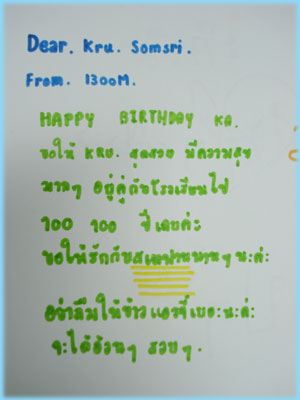 Dear. Kru. Somsri.
From. 1300M.
HAPPY BIRTHDAY KA.
ขอให้ KRU. สุดสวย มีความสุข
มากๆ อยู่คู่กับโรงเรียนไป
100 100 ปีเลยค่ะ
ขอให้รักกับสามีนานๆ นะค่ะ
อย่าลืมให้ข้าวแมวเยอะนะค่ะ
จะได้อ้วนๆ สวยๆ.